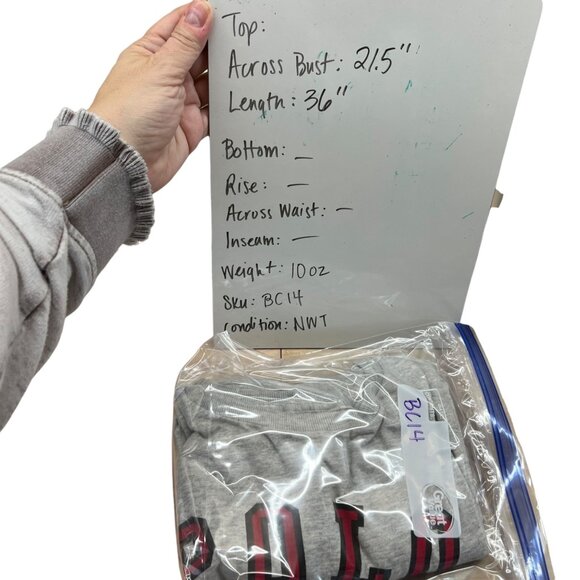 Top:
Across Bust: 21.5"
Length: 36"
Bottom: —
Rise: —
Across Waist: —
Inseam: —
Weight: 10 oz
Sku: BC14
Condition: NWT
BC14
Great